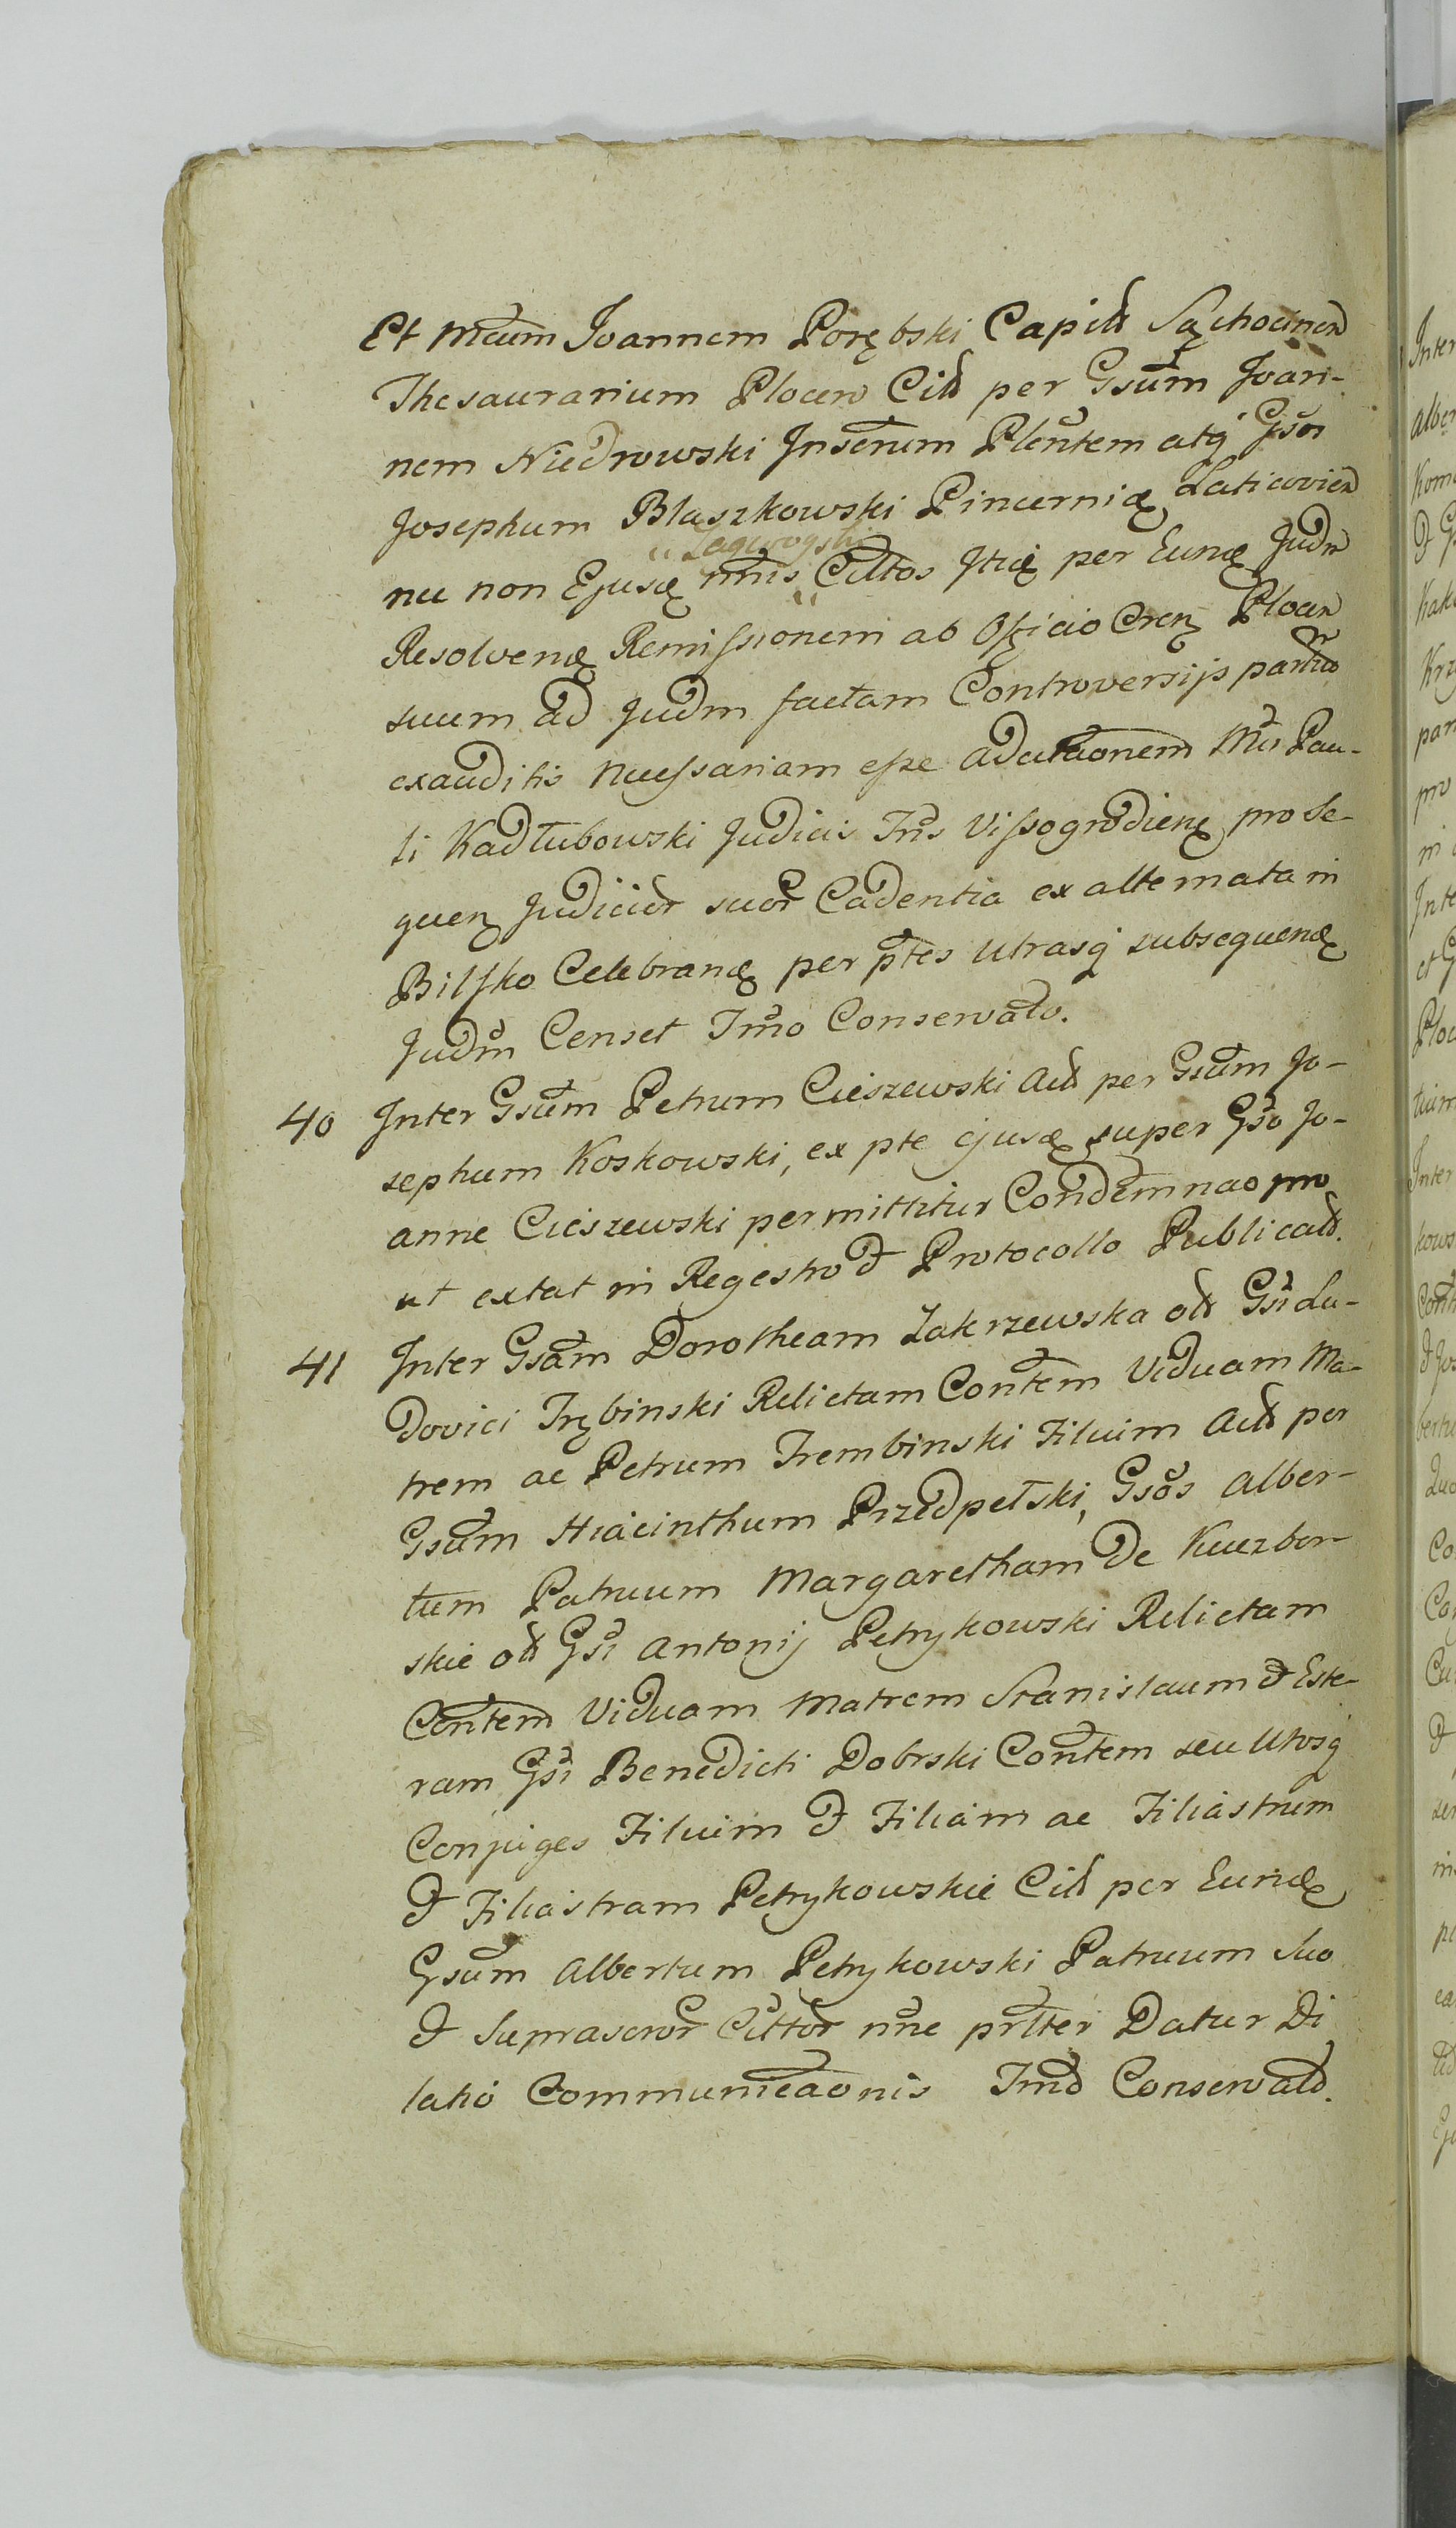 Et Mcum Joannem Porębski Capitd Sąchocinen
Thesaurarium Plocen Citd per Gsum Joan-
nem Niedrowski Inserum Plentem atq Gsos
Josephum Błaszkowski Pincernię Laticovien
"Zagwoyski
nec non Ejusd nnis Cittos Itię per Eund Judm
Resolvend Remissionem ab Officio Cren Plocen
suum ad Judm factam Controversijs partium
exauditis necessariam esse adcitationem Mci Pau-
li Kadłubowski Judicis Tris Vissogrodiens pro se-
quen Judicior suor Cadentia ex alternata in
Bilsko Celebrand per ptes utrasq subsequend
Judm Censet Tmo Conservato.
40 Inter Gsum Petrum Cieszewski Actd per Gsum Jo-
sephum Koskowski, ex pte ejusd super Gso Jo-
anne Cieszewski permittitur Condemnao pro
ut extat in Regestro et Protocollo Publicatd.
41 Inter Gsam Dorotheam Zakrzewska old Gsi Lu-
dovici Trębinski Relictam Contem Viduam Ma-
trem ac Petrum Trembinski Filium Actd per
Gsum Hiacinthum Przedpełski, Gsos Alber-
tum Patruum Margaretham De Kuczbor-
skie old Gsi Antonij Petrykowski Relictam
Contem Viduam Matrem Stanislaum et Este-
ram Gsi Benedicti Dobrski Contem seu Utosq
Conjuges Filium et Filiam ac Filiastrum
et Filiastram Petrykowskie Citd per Eund
Gsum Albertum Petrykowski Patruum Suo
et Suprascror Cittor nne prlter Datur Di
latio Communicaonis Tmo Conservatd.